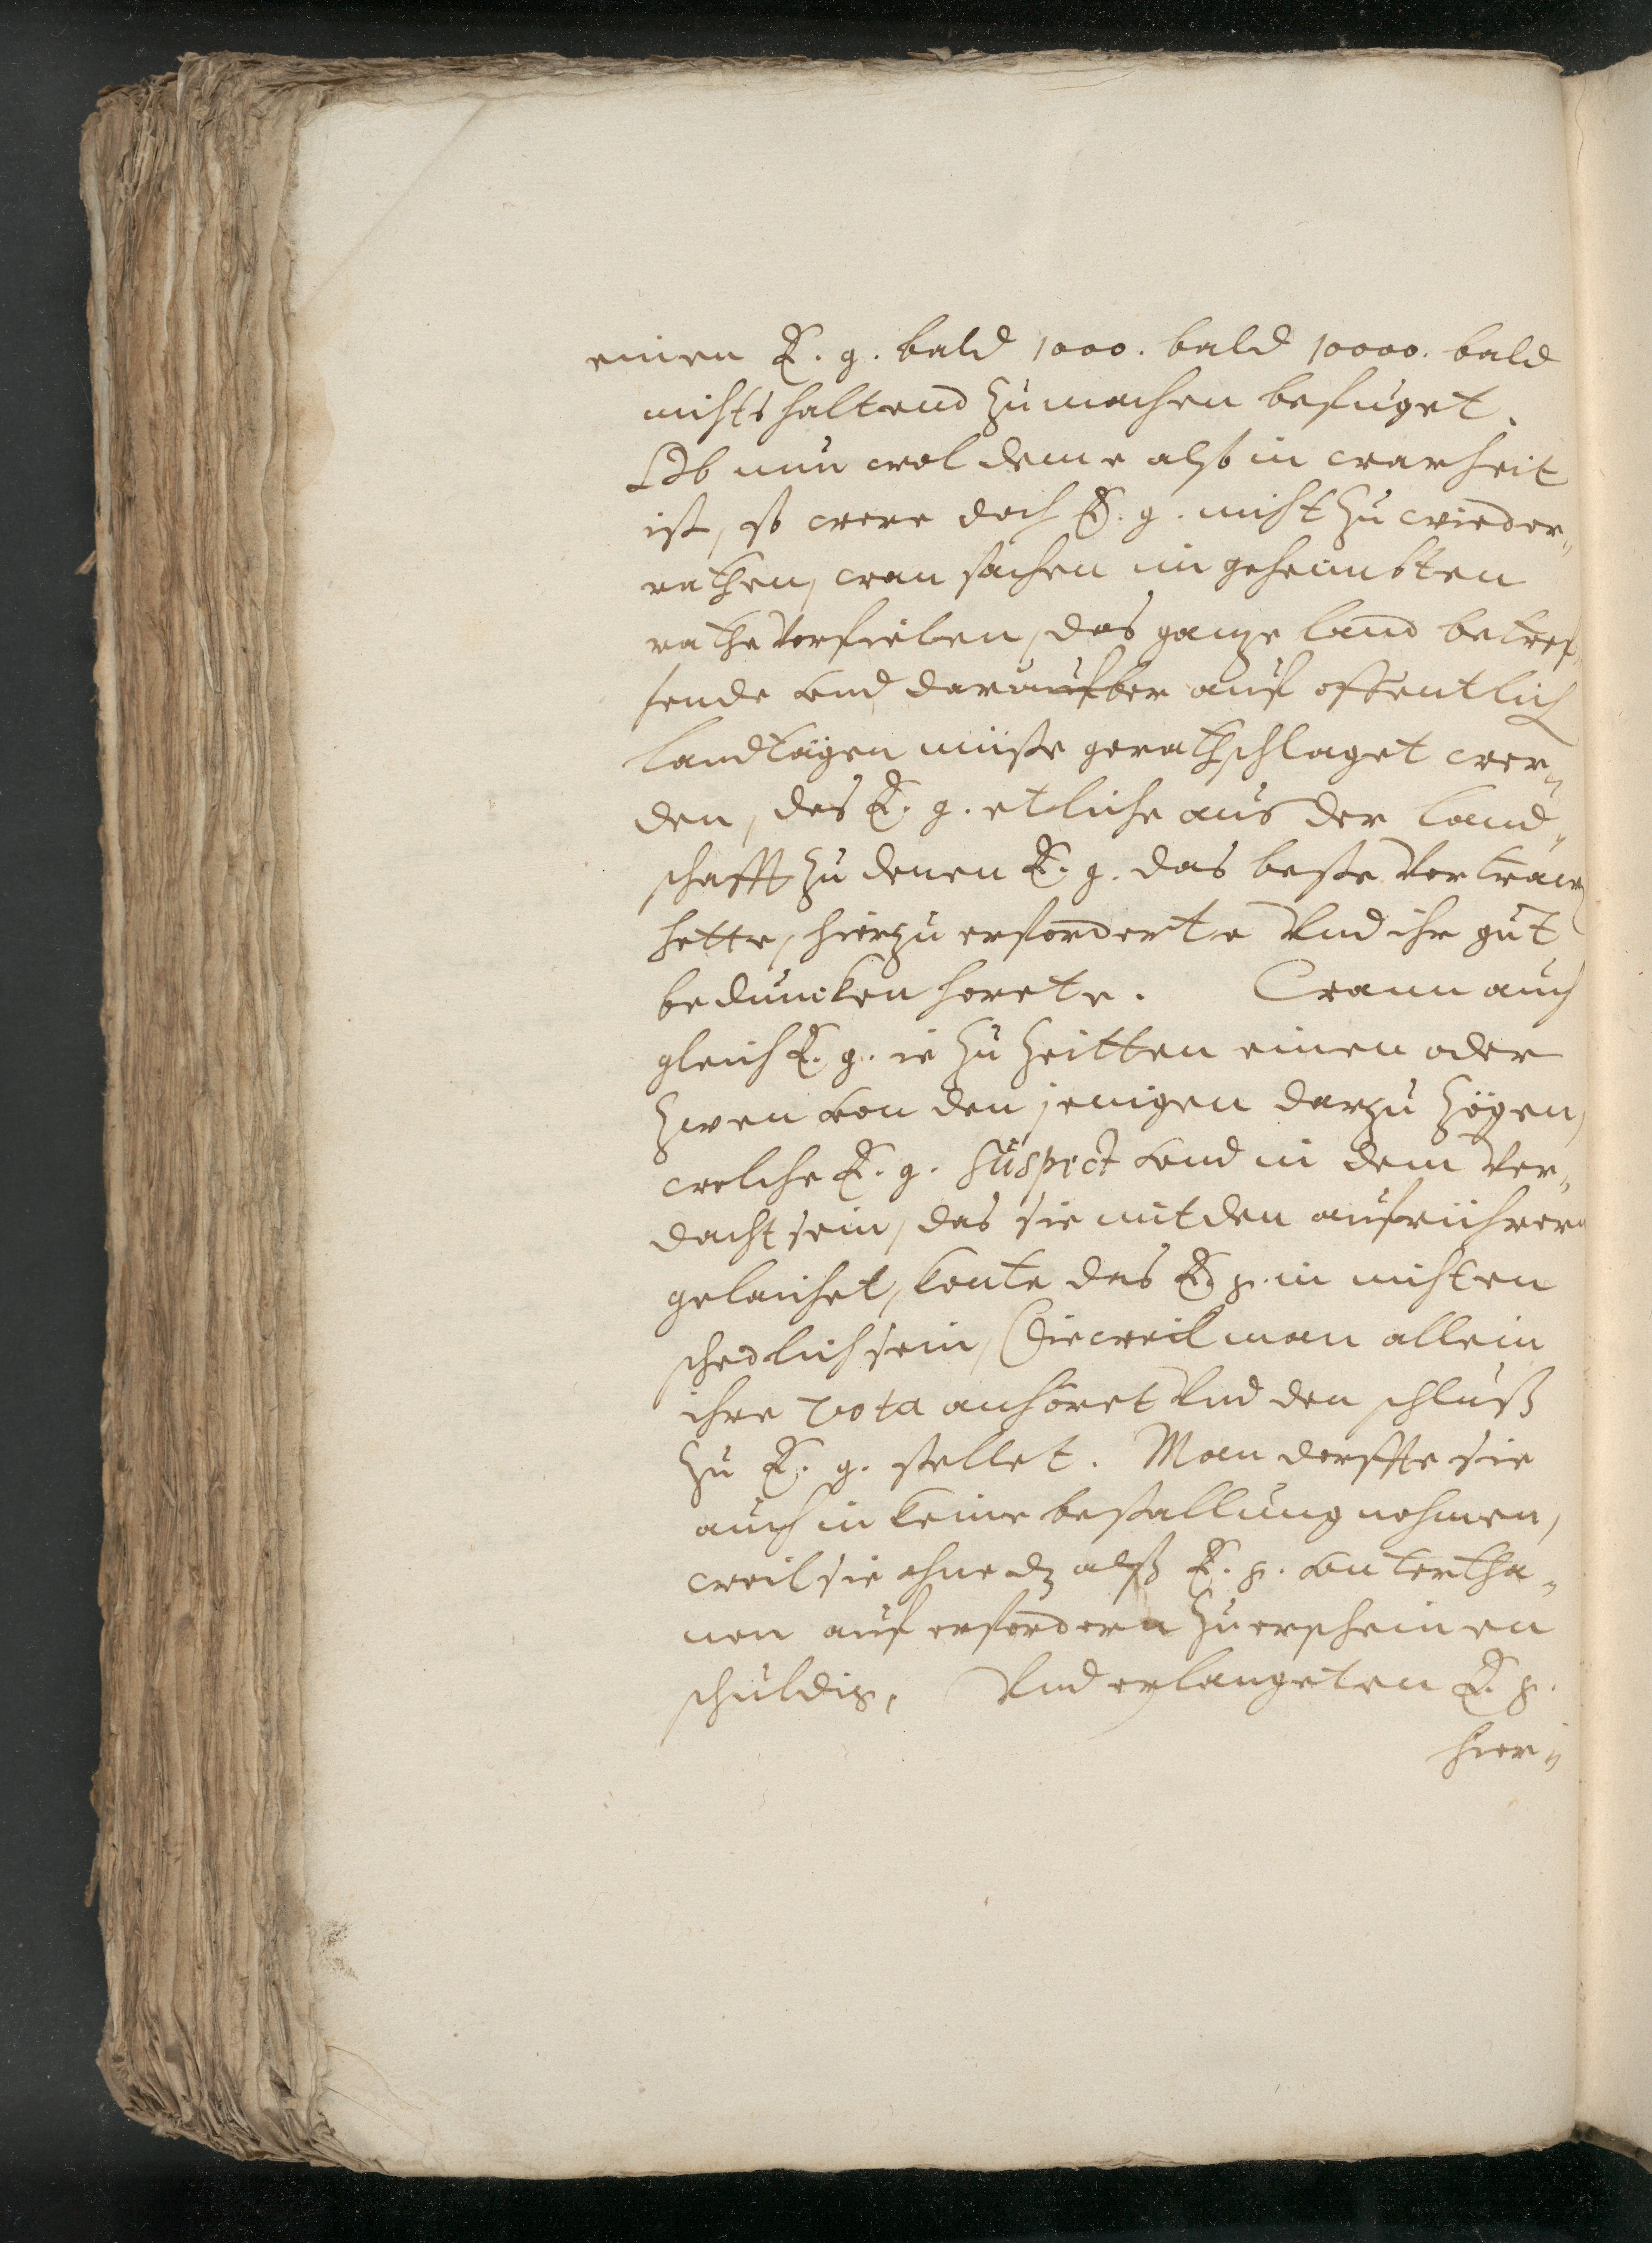 einen E. g. bald 1000. bald 10000. bald
nichts haltend zumachen befuget.
Ob nun wol deme also in warheit
ist, so were doch E. g. nicht zu wieder„
rathen, wan sachen im geheimbten
rathe vorfielen, das ganze land betref„
fende vnd darauf ber auf offentlich
landtägen müste gerathschlaget wer„
den, das E. g. etliche aus der land„
schafft zu denen E. g. das beste vertrawen
hette, hierzu erforderte vnd ihr gut
beduncken horete. Wann auch
gleich E. g. ie zu zeitten einen oder
zwen von den jenigen darzu zögen,
welche E. g. suspect vnd in dem ver„
dacht sein, das sie mit den aufrührern
gelaichet, konte das E. g. in nichten
schedlich sein, Dieweil man allein
ihre vota anhöret vnd den schluß
zu E. g. stellet. Man dorffte sie
auch in keine bestallung nehmen,
weil sie ohne dz alß E. g. vntertha„
nen auf erfordern zu erscheinen
schuldig, Vnd erlangeten E. g.
hier„